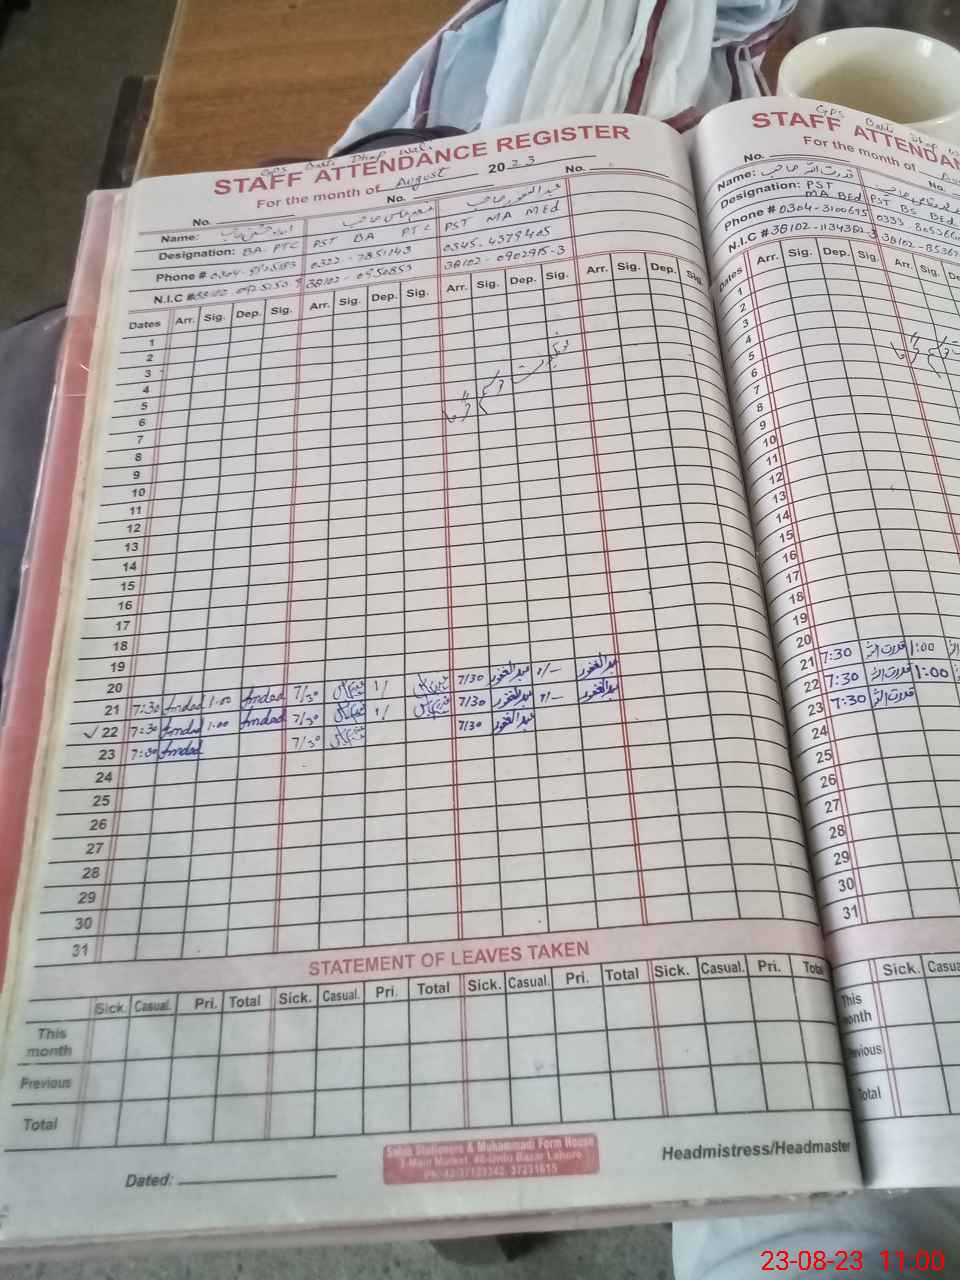 GPS Basti Dhap Wali
STAFF ATTENDANCE REGISTER
For the month of August 2023
No. No. No.
Name: صاحب صاحب عبدالغفور صاحب
Designation: BA. PTC PST BA PTC PST MA MEd
Phone # 0323-7851143 0345-4379405
N.I.C # 38102-0950853 38102-0902915-3
Dates Arr. Sig. Dep. Sig. Arr. Sig. Dep. Sig. Arr. Sig. Dep. Sig. Arr. Sig. Dep. Sig.
1
2
3
4
5
6
7
8
9
10
11
12
13
14
15
16
17
18
19
20
21 7:30 Amdad 1:00 Amdad 7/30 1/ 7/30 عبدالغفور 1/- عبدالغفور
✓ 22 7:30 Amdad 1:00 Amdad 7/30 1/ 7/30 عبدالغفور 1/- عبدالغفور
23 7:30 Amdad 7/30 7/30 عبدالغفور
24
25
26
27
28
29
30
31
STATEMENT OF LEAVES TAKEN
Sick. Casual. Pri. Total Sick. Casual. Pri. Total Sick. Casual. Pri. Total Sick. Casual. Pri. Total
This month
Previous
Total
Dated:
Headmistress/Headmaster
Stationers & Muhammadi Form House
Main Market, Urdu Bazar Lahore
GPS Basti Dhap
STAFF ATTENDAN
For the month of
No. No.
Name: قدرت اللہ صاحب
Designation: PST MA BEd PST BS BEd
Phone # 0304-3100675 0333
N.I.C # 38102-1134382-3 38102
Dates Arr. Sig. Dep. Sig. Arr. Sig.
1
2
3
4
5
6
7
8
9
10
11
12
13
14
15
16
17
18
19
20
21 7:30 قدرت اللہ 1:00
22 7:30 قدرت اللہ 1:00
23 7:30 قدرت اللہ
24
25
26
27
28
29
30
31
Sick. Casua
This month
Previous
Total
23-08-23 11:00